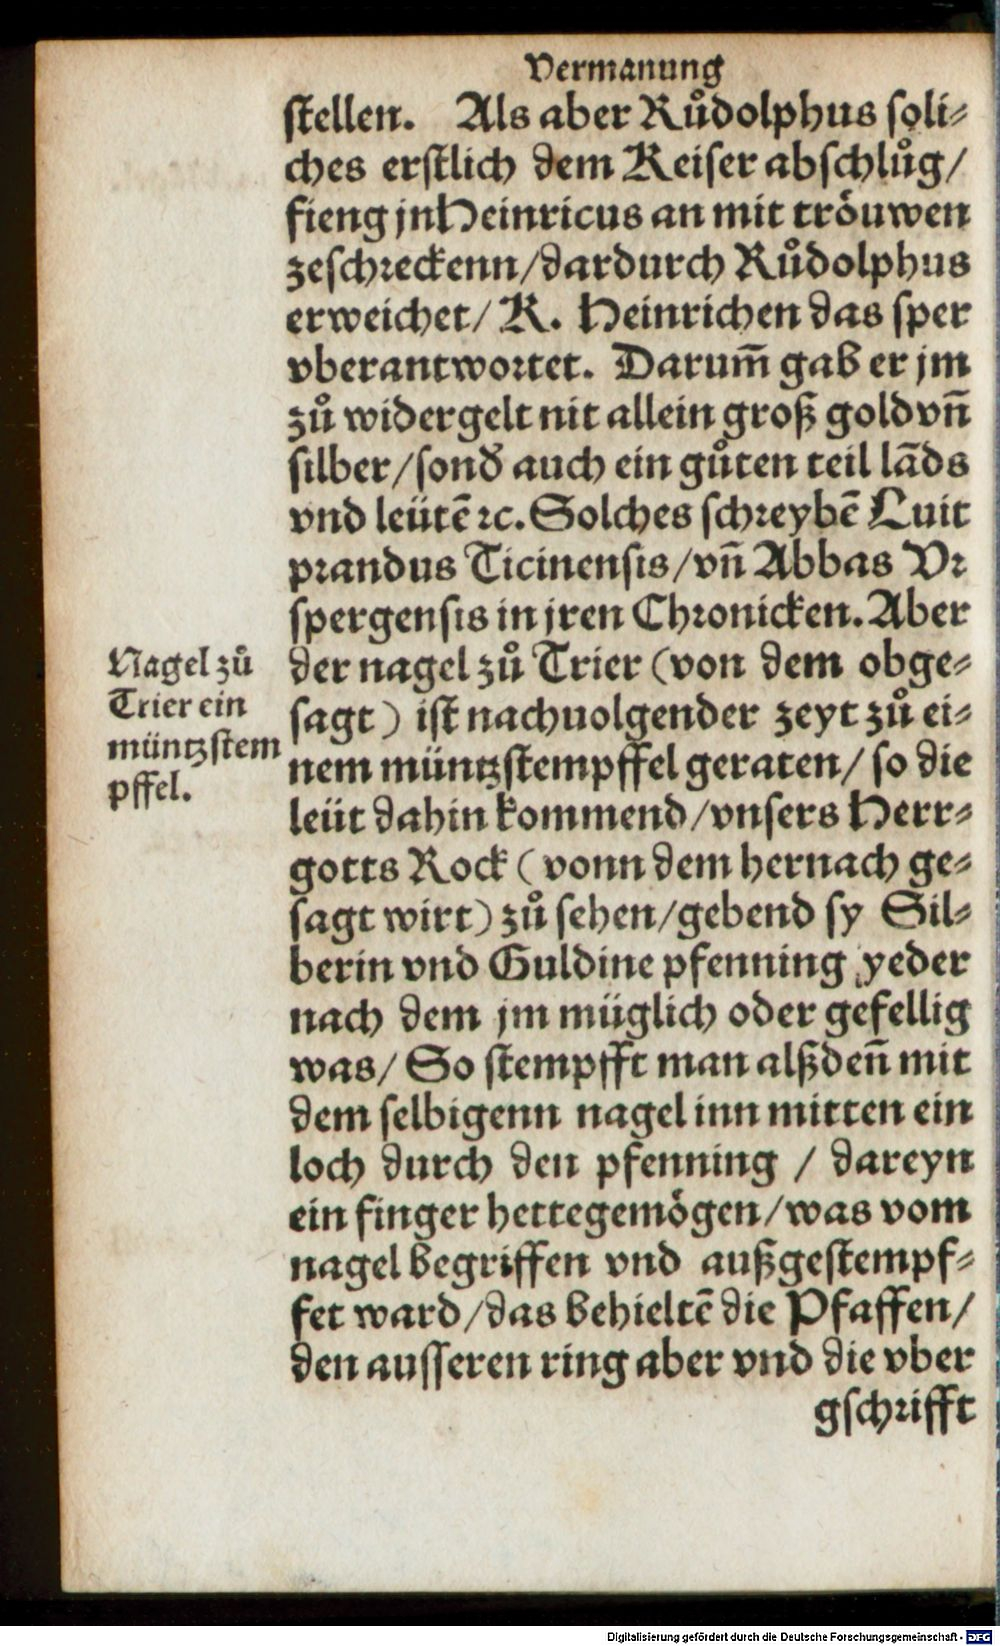 Vermanung
ſtellen. Als aber Ruͦdolphus ſoli⸗
ches erſtlich dem Keiſer abſchluͦg/
fieng jn Heinricus an mit troͤuwen
zeſchꝛeckenn/dardurch Ruͦdolphus
erweichet/ K. Heinrichen das ſper
vberantwoꝛtet. Darum̃ gab er jm
zuͦ widergelt nit allein groß gold vñ
ſilber/ſond̃ auch ein guͦten teil lãds
vnd leütẽ ꝛc. Solches ſchꝛeybẽ Luit
pꝛandus Ticinenſis/vñ Abbas Vꝛ
ſpergenſis in jren Chꝛonicken. Aber
der nagel zuͦ Trier (von dem obge⸗
ſagt) iſt nachuolgender zeyt zuͦ ei⸗
nem müntzſtempffel geraten/ ſo die
leüt dahin kommend/vnſers Herr⸗
gotts Rock (vonn dem hernach ge⸗
ſagt wirt) zuͦ ſehen/gebend ſy Sil⸗
berin vnd Guldine pfenning yeder
nach dem jm müglich oder gefellig
was/ So ſtempfft man alßdeñ mit
dem ſelbigenn nagel inn mitten ein
loch durch den pfenning / dareyn
ein finger hette gemoͤgen/was vom
nagel begriffen vnd außgeſtempf⸗
fet ward/das behieltẽ die Pfaffen/
den auſſeren ring aber vnd die vber
gſchꝛifft
Nagel zuͦ
Trier ein
müntzſtem
pffel.
Digitalisierung gefördert durch die Deutsche Forschungsgemeinschaft - DFG